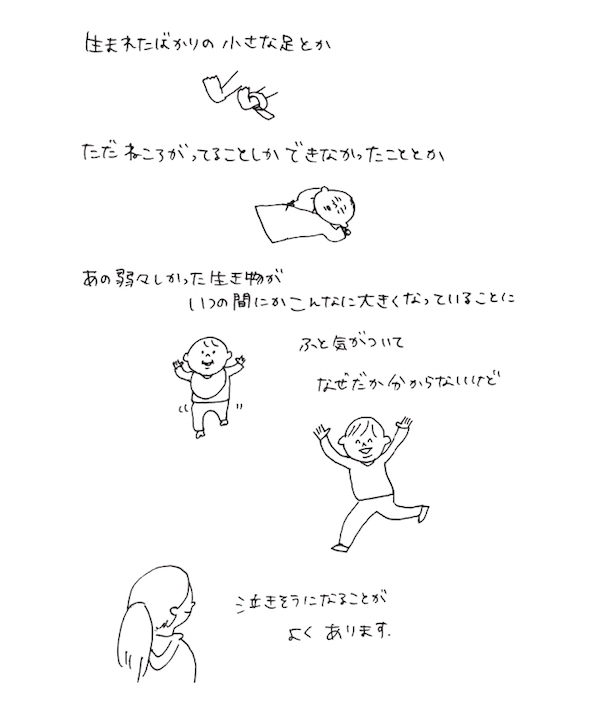 生まれたばかりの 小さな足とか
ただ ねころがってることしか できなかったこととか
あの弱々しかった生き物が
いつの間にかこんなに大きくなっていることに
ふと気がついて
なぜだか分からないけど
泣きそうになることが
よく あります.